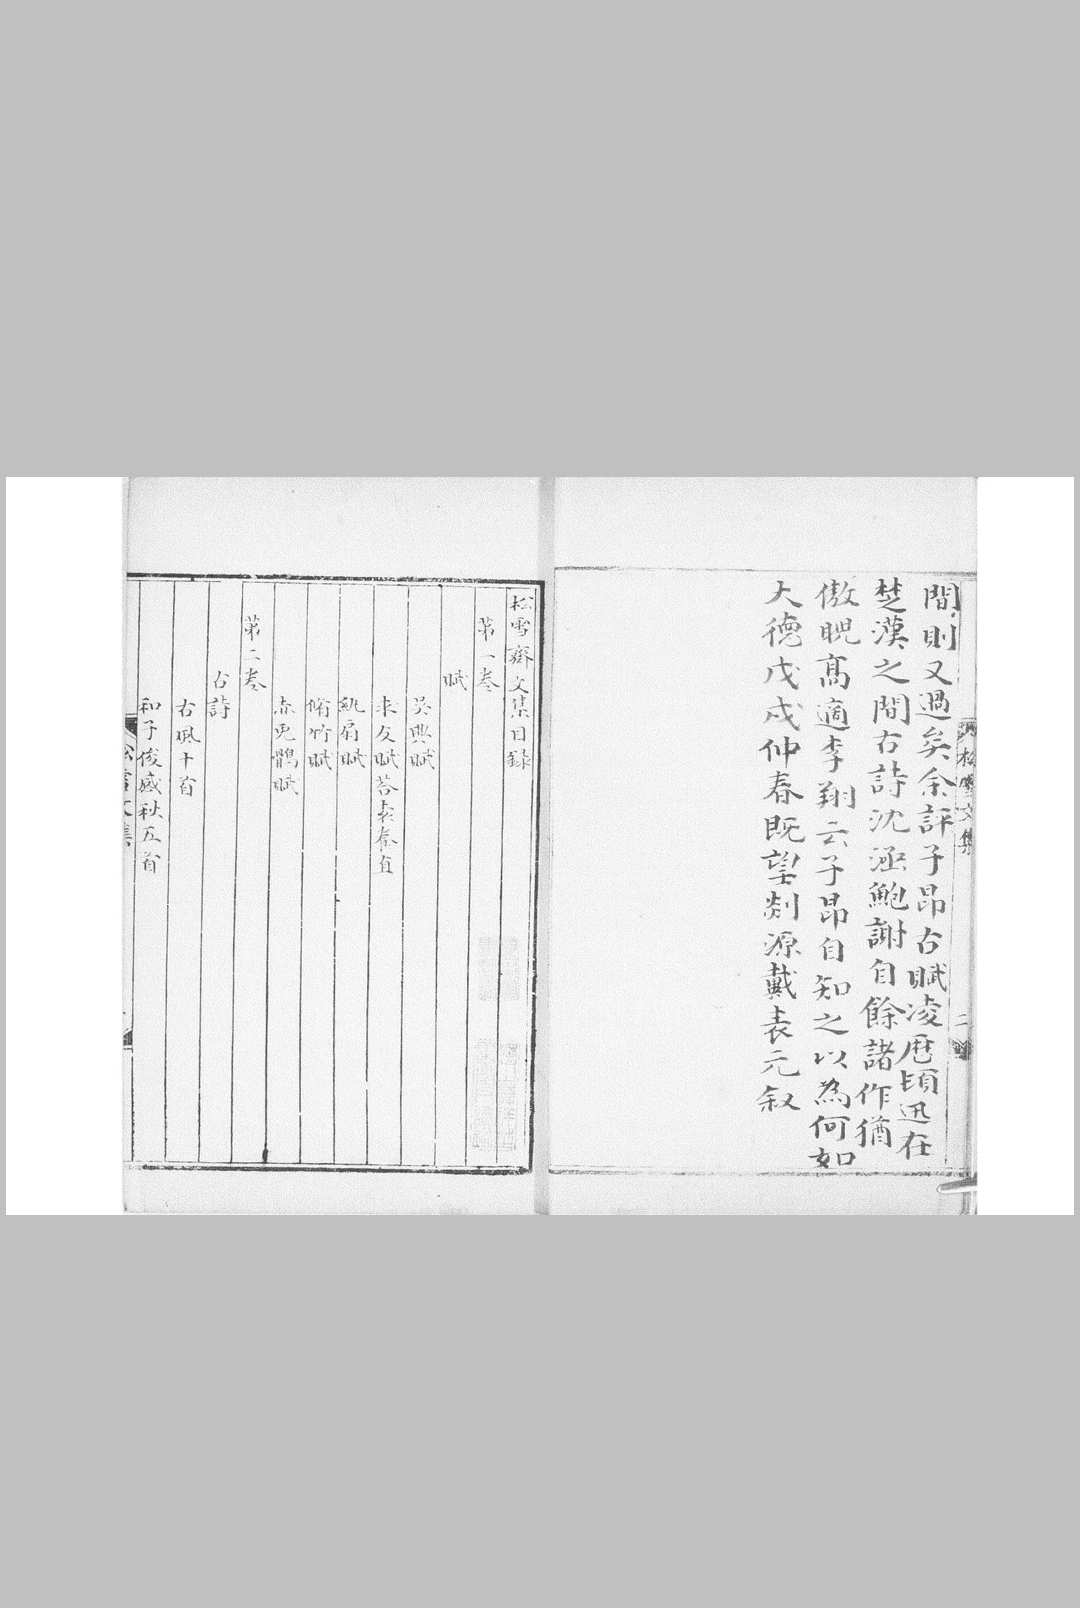 間則又過矣余評子昂古賦凌厯頃迅在
楚漢之間古詩沈涵鮑謝自餘諸作猶
傲睨髙適李翱云子昂自知之以為何如
大德戊戌仲春既望剡源戴表元叙
松雪文集
二
松雪齋文集目録
第一卷
賦
吳興賦
求友賦荅袁養直
紈扇賦
脩竹賦
赤兎鶻賦
第二卷
古詩
古風十首
和子俊感秋五首
松雪文集